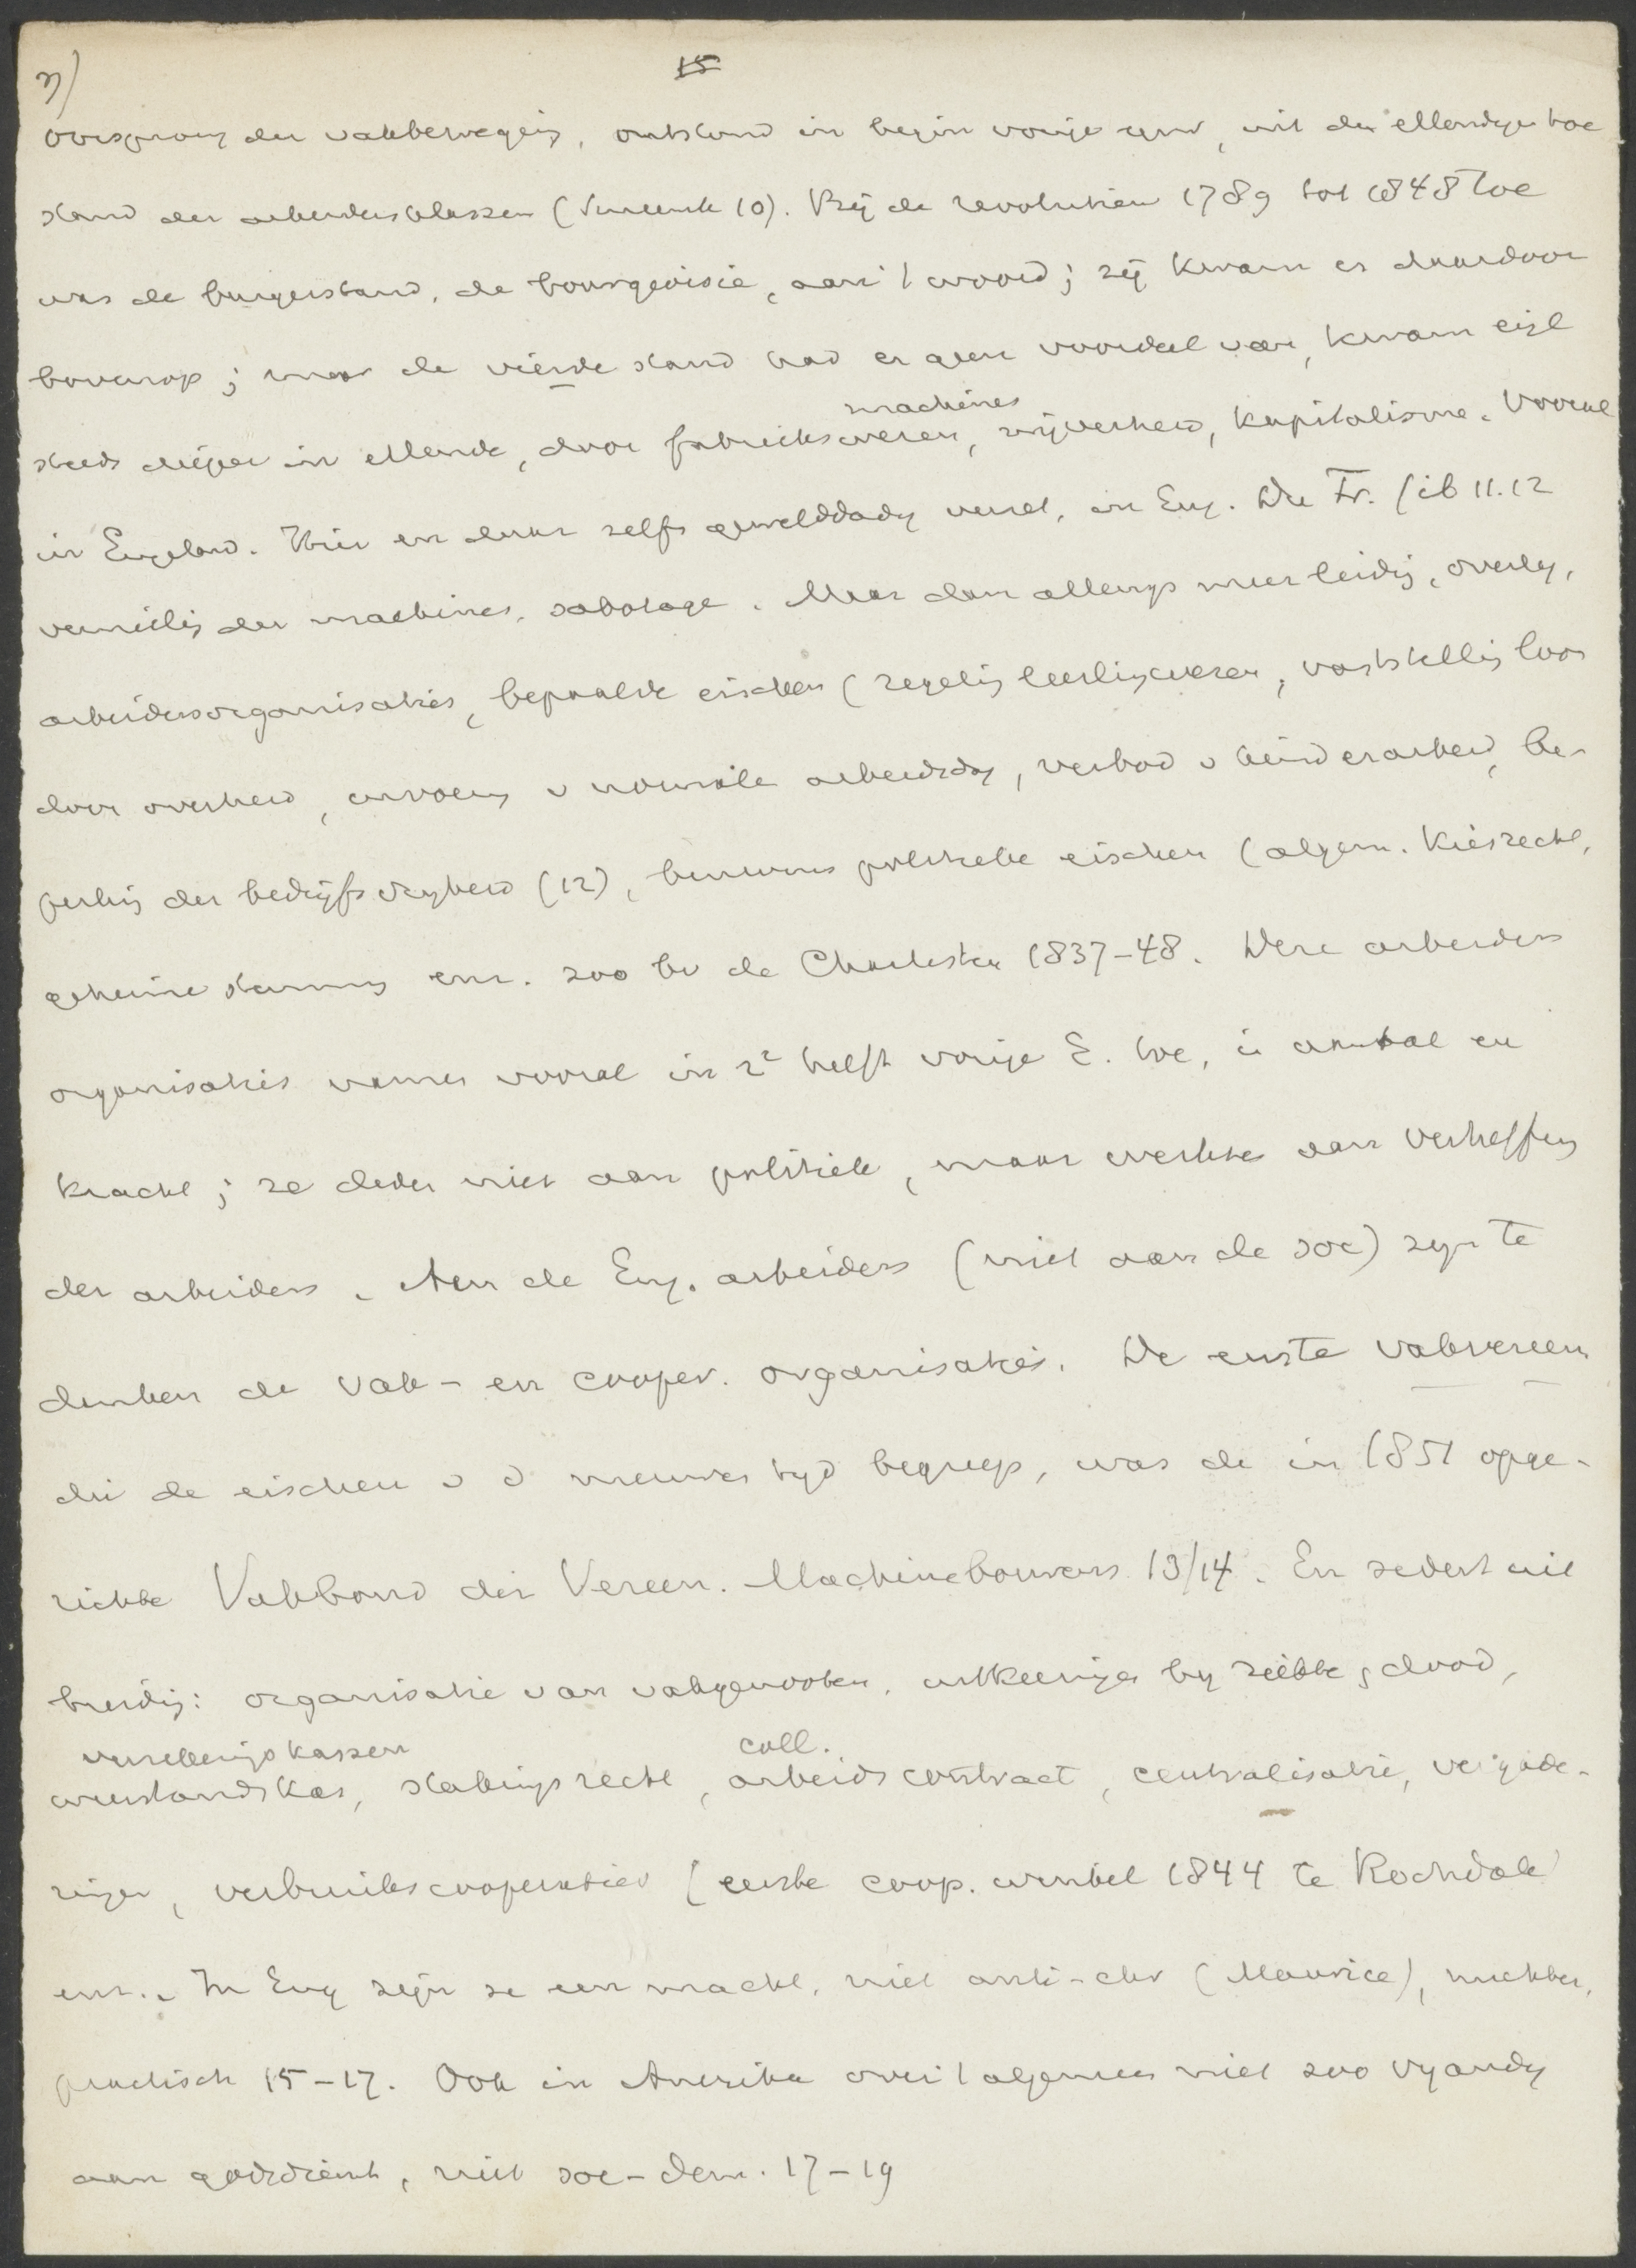 3)
15
Oorsprong der vakbeweging, ontstond in begin vorige eeuw, uit den ellendigen toe
stand der arbeidersklassen (Smeenk 10). Bij de revolutien 1789 tot 1848 toe
was de burgerstand, de bourgeoisie, aan 't woord; zij kwam er daardoor
bovenop; maar de vierde stand had er geen voordeel van, kwam eigl
steeds dieper in ellende, door fabriekswezen, machines, nijverheid, kapitalisme. Vooral
in Engeland. Hier en daar zelfs gewelddadig verzet, in Eng. Du Fr. (ib 11.12
vernieling der machines, sabotage. Maar dan allengs meer leiding, overleg,
arbeidersorganisaties, bepaalde eischen (regeling leerlingwezen, vaststelling loon
door overheid, invoering v normale arbeidsdag, verbod v kinderarbeid, be-
perking der bedrijfsvrijheid (12), benevens politieke eischen (algem. Kiesrecht,
geheime stemming enz. zoo bv de Chartisten 1837-48. Deze arbeiders
organisaties namen vooral in 2e helft vorige E. toe, in aantal en
kracht; ze deden niet aan politiek, maar werkten aan verheffing
der arbeiders. Aan de Eng. arbeiders (niet aan de soc) zijn te
danken de vak- en cooper. organisaties. De eerste vakvereen
die de eischen v d nieuwen tijd begreep, was de in 1851 opge-
richte Vakbond der Vereen. Machinebouwers 13/14. En sedert uit
breiding: organisatie van vakgenooten, uitkeeringen bij ziekte, dood,
weerstandskas, verzekeringskassen, stakingsrecht, coll. arbeidscontract, centralisatie, vergade-
ringen, verbruikscooperaties (eerste coop. winkel 1844 te Rochdale)
enz.. In Eng zijn ze een macht, niet anti-chr (Maurice), nuchter,
practisch 15-17. Ook in Amerika over 't algemeen niet zoo vijandig
aan godsdienst, niet soc-dem. 17-19